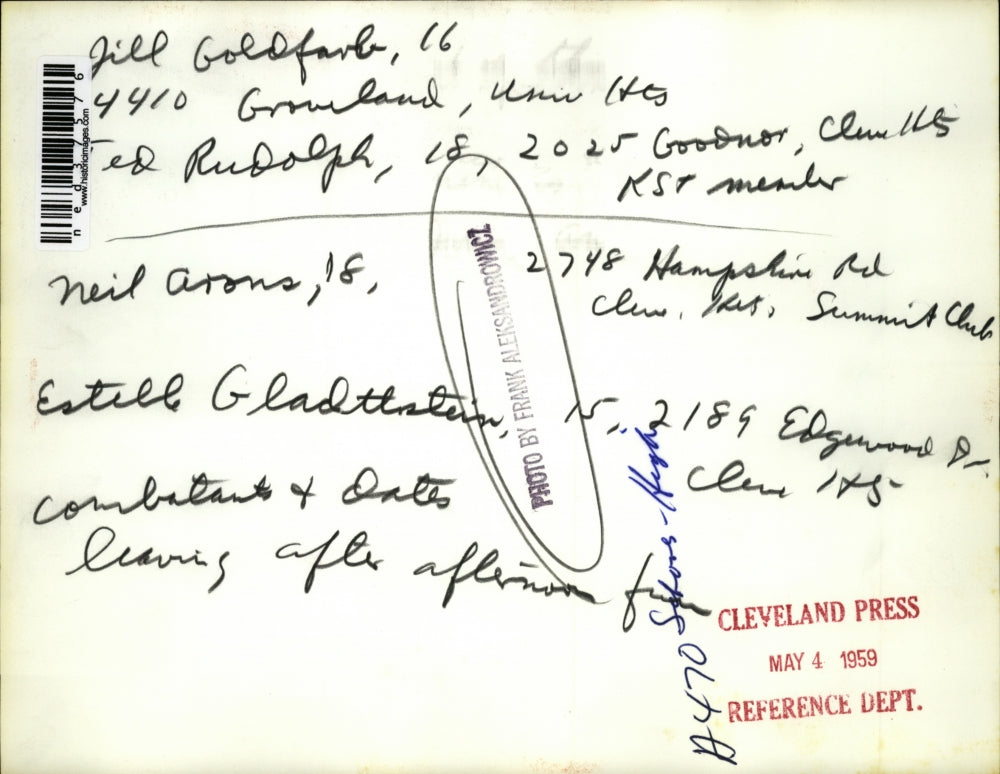 Jill Goldfarb, 16
4410 Groveland, Univ Hts
Ted Rudolph, 18, 2025 Goodnor, Cleve Hts
KST member
Neil Arons, 18, 2748 Hampshire Rd
Cleve. Hts. Summit Club
Estelle Gladttstein, 15, 2189 Edgewood Dr
Cleve Hts
combatants & dates
leaving after afternoon fun
PHOTO BY FRANK ALEKSANDROWICZ
CLEVELAND PRESS
MAY 4 1959
REFERENCE DEPT.
High
www.historicimages.com